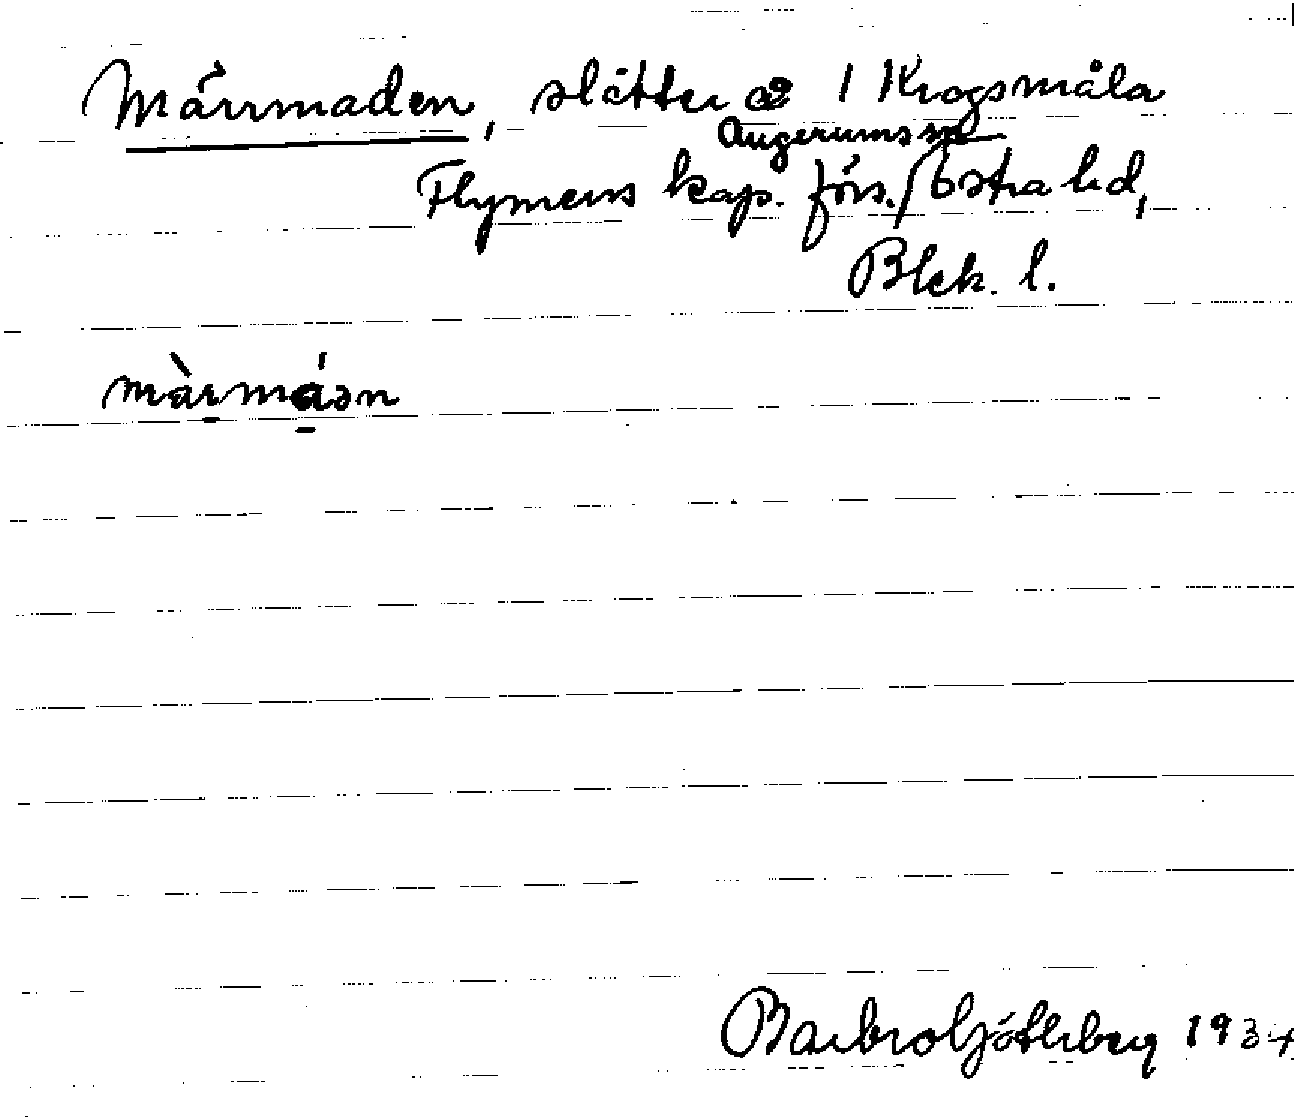 Märrmaden, slåtter 1 Krogsmåla
Augerums sn
Flymens kap. förs. / Östra hd,
Blek. l.
màrmáən
Barbro Götherberg 1934